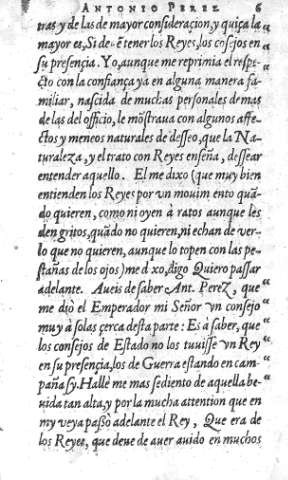 ANTONIO PEREZ 6
tras y de las de mayor consideraçion, y quiça la
mayor es, Si de-ē tener los Reyes, los cōsejos en
su presençia. Yo, aunque me reprimia el respe-
cto con la confiança ya en alguna manera fa-
miliar, nascida de muchas personales de mas
de las del officio, le mōstraua con algunos affe-
ctos y meneos naturales de desseo, que la Na-
turaleza, y el trato con Reyes enseña, dessear
entender aquello. El me dixo (que muy bien
entienden los Reyes por vn mouim ento quā-
do quieren, como ni oyen á ratos aunque les
den gritos, quādo no quieren, ni echan de ver-
lo que no quieren, aunque lo topen con las pe-
stañas de los ojos) me d xo, digo Quiero passar
adelante. Aueis de saber Ant. Perez, que
me diò el Emperador mi Señor vn consejo
muy à solas çerca desta parte: Es à saber, que
los consejos de Estado no los tuuisse vn Rey
en su presençia, los de Guerra estando en cam-
paña sy. Hallè me mas sediento de aquella be-
uida tan alta, y por la mucha attention que en
my veya passò adelante el Rey, Que era de
los Reyes, que deue de auer auido en muchos